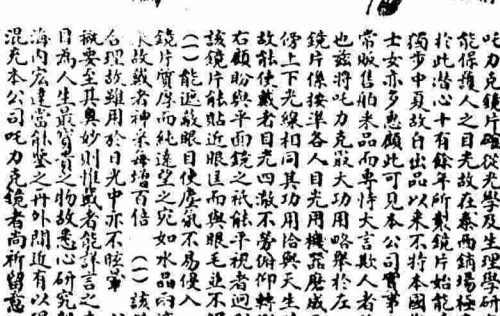 吒力克鏡片確從光學及生理學研
能保護人之目光故在泰西銷場極
於此潛心十有餘年所製鏡片始能
獨步中夏故自出品以來不特本國
士女亦多惠顧此可見本公司實事
常販售舶來品而專恃大言欺人者
也茲將吒力克最大功用略舉於左
鏡片係按準各人目光用機器磨成
傍上下光線相同其功用恰與天生
故能使戴者目光四澈不勞俯仰轉
右顧盼與平面鏡之祇能平視者迥
該鏡片能貼近眼匡而與眼毛並不
(一)能遮蔽眼目使塵氛不易侵入
鏡片質厚而純遠望之宛如水晶而
故戴者神采每增百倍 (一)該
合理故雖用於日光中亦不眩暈
要至其奧妙則惟戴者能詳言之
目為人生最寶貴之物故悉心研究
海內宏達當能鑒之再外間近有以
混充本公司吒力克鏡者尚祈留意